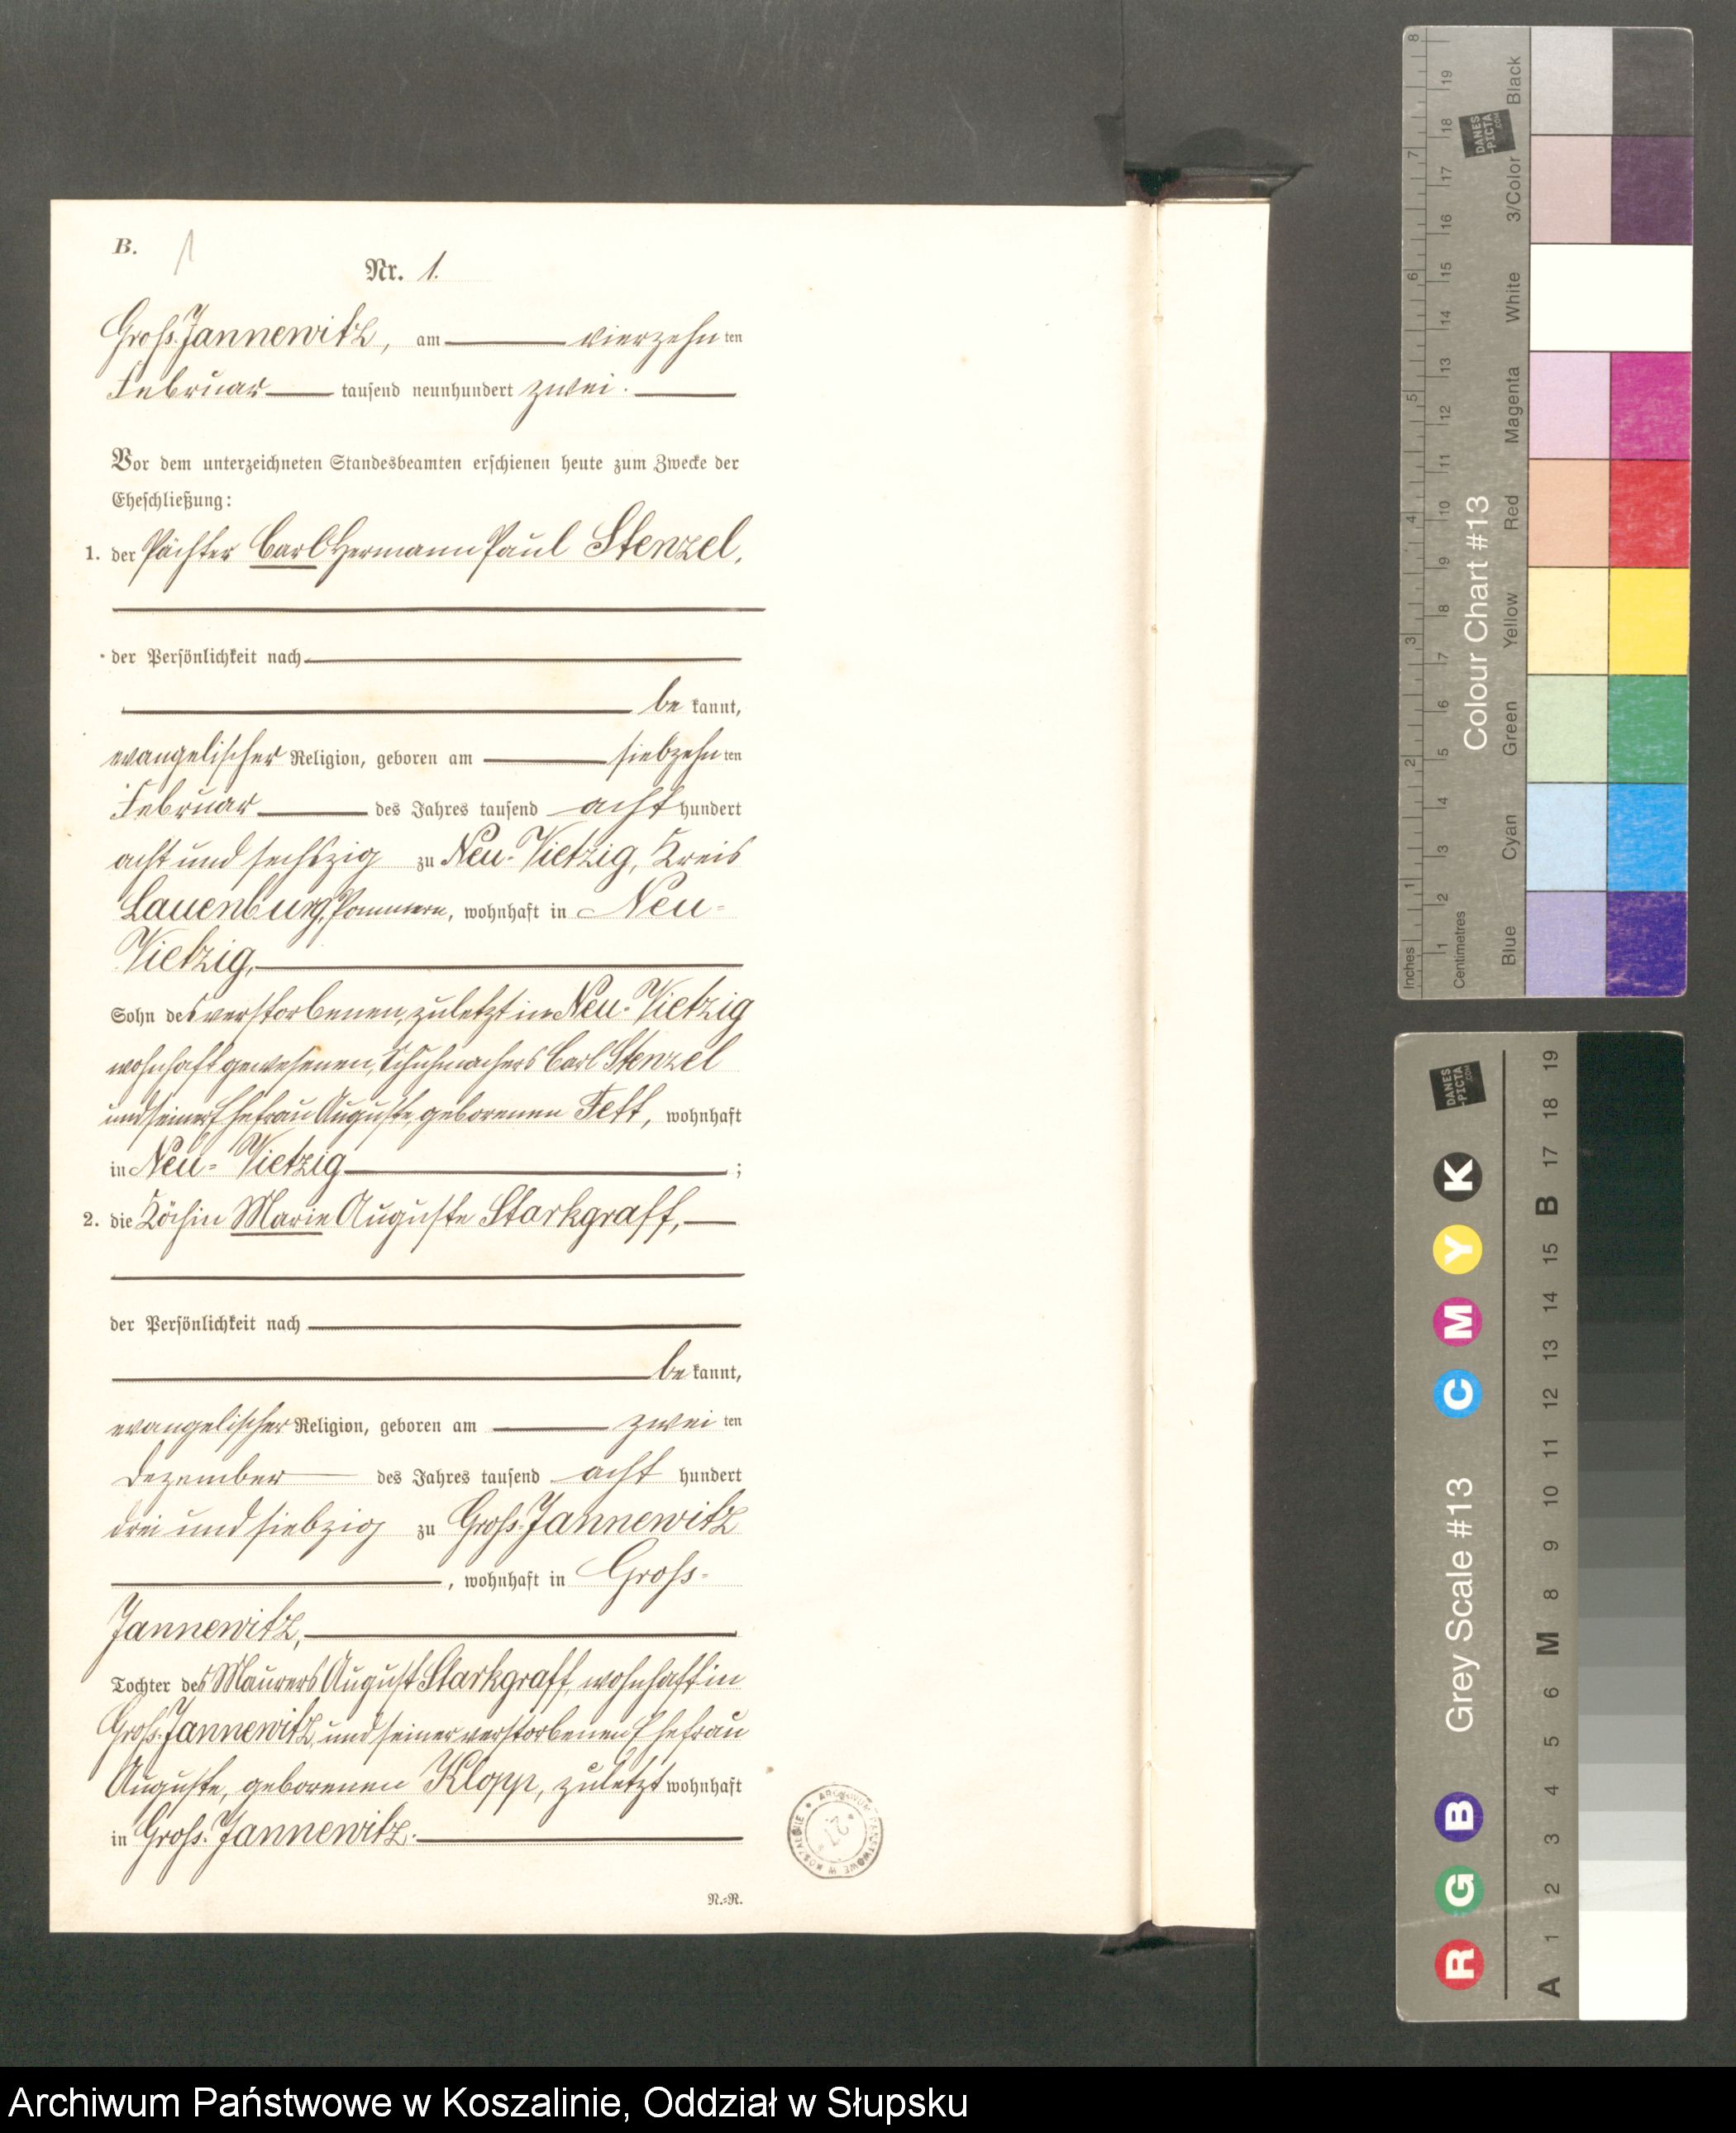 B. 1
Nr. 1.
Groß Jannewitz, am vierzehn ten
Februar tausend neunhundert zwei.
Vor dem unterzeichneten Standesbeamten erschienen heute zum Zwecke der
Eheschließung:
1. der Pächter Carl Hermann Paul Stenzel,
der Persönlichkeit nach
be kannt,
evangelischer Religion, geboren am siebzehn ten
Februar des Jahres tausend acht hundert
acht und sechszig zu Neu-Vietzig, Kreis
Lauenburg, Pommern, wohnhaft in Neu-
Vietzig,
Sohn des verstorbenen, zuletzt in Neu-Vietzig
wohnhaft gewesenen, Schuhmachers Carl Stenzel
und seiner Ehefrau Auguste, geborenen Fett, wohnhaft
in Neu-Vietzig ;
2. die Köchin Marie Auguste Starkgraff,
der Persönlichkeit nach
be kannt,
evangelischer Religion, geboren am zwei ten
Dezember des Jahres tausend acht hundert
drei und siebzig zu Groß-Jannewitz
, wohnhaft in Groß-
Jannewitz,
Tochter des Maurers August Starkgraff, wohnhaft in
Groß-Jannewitz, und seiner verstorbenen Ehefrau
Auguste, geborenen Klopp, zuletzt wohnhaft
in Groß-Jannewitz.
R.=R.
ARCHIWUM PAŃSTWOWE W KOSZALINIE
27
Inches 1 2 3 4 5 6 7 8
Centimetres 1 2 3 4 5 6 7 8 9 10 11 12 13 14 15 16 17 18 19
Colour Chart #13
DANES
-PICTA
.COM
Blue Cyan Green Yellow Red Magenta White 3/Color Black
Grey Scale #13
DANES
-PICTA
.COM
R G B C M Y K
A 1 2 3 4 5 6 M 8 9 10 11 12 13 14 15 B 17 18 19
Archiwum Państwowe w Koszalinie, Oddział w Słupsku